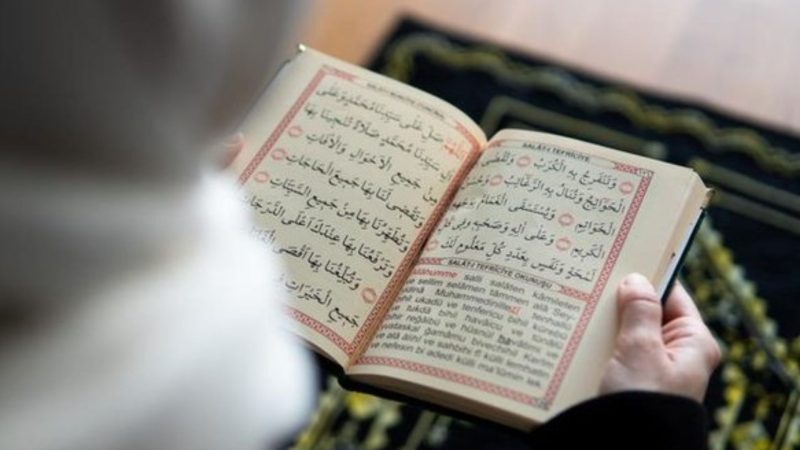 SALÂT-I MÜNCİYE
اَللّٰهُمَّ صَلِّ عَلَى سَيِّدِنَا مُحَمَّدٍ وَعَلَى
سَيِّدِنَا مُحَمَّدٍ صَلَاةً تُنْجِينَا بِهَا
مِنْ جَمِيعِ الْاَحْوَالِ وَالْاٰفَاتِ
وَتَقْضِى لَنَا بِهَا جَمِيعَ الْحَاجَاتِ
وَتُطَهِّرُنَا بِهَا مِنْ جَمِيعِ السَّيِّئَاتِ
وَتَرْفَعُنَا بِهَا عِنْدَكَ اَعْلَى الدَّرَجَاتِ
وَتُبَلِّغُنَا بِهَا اَقْصَى
جَمِيعِ الْخَيْرَاتِ
SALÂT-I TEFRİCİYE
وَتَنْفَرِجُ بِهِ الْكُرَبُ وَتُقْضَى
بِهِ الْحَوَائِجُ وَتُنَالُ بِهِ الرَّغَائِبُ
الْخَوَاتِيمِ وَيُسْتَسْقَى الْغَمَامُ بِوَجْهِهِ
الْكَرِيمِ وَعَلَى اٰلِهِ وَصَحْبِهِ فِى كُلِّ
لَمْحَةٍ وَنَفَسٍ بِعَدَدِ كُلِّ مَعْلُومٍ لَكَ
SALÂT-I TEFRİCİYE OKUNUŞU
salli salâten kâmileten
ve sellim selâmen tâmmen alâ Sey-
Muhammedinillezi
ukadü ve tenfericu bihil kürebu
tukdâ bihil havâicu ve tünâlu
bihir reğâibu ve hüsnül havâtimi ve
yustaskal ğamâmu bivechihil Kerîmi
ve alâ âlihî ve sahbihî fî külli lemhatin
ve nefesin bi adedi külli ma'lûmin lek.